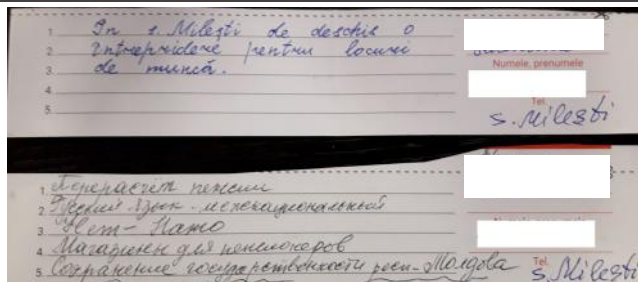 1. În s. Milești de deschis o
2. întrepridere pentru locuri
3. de muncă.
4.
5.
Numele, prenumele
Tel.
s. Milești
1. Перерасчёт пенсии
2. Русский язык - межнациональный
3. Нет - Нато
4. Магазины для пенсионеров
5. Сохранение государственности респ-Молдова
Numele, prenumele
Tel.
s. Milești